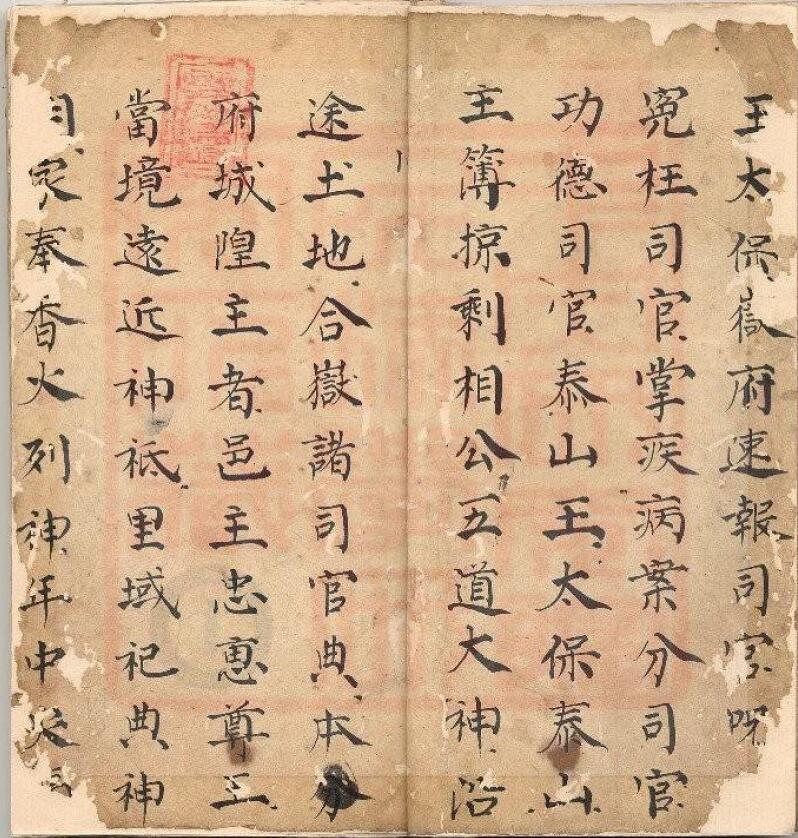 王太保嶽府速報司官呪
冤枉司官掌疾病案分司官
功德司官泰山王太保泰山
主簿掠剩相公五道大神沿
途土地合嶽諸司官典本分
府城隍主者邑主忠惠尊王
當境遠近神祇里域祀典神
司家奉香火列神年中